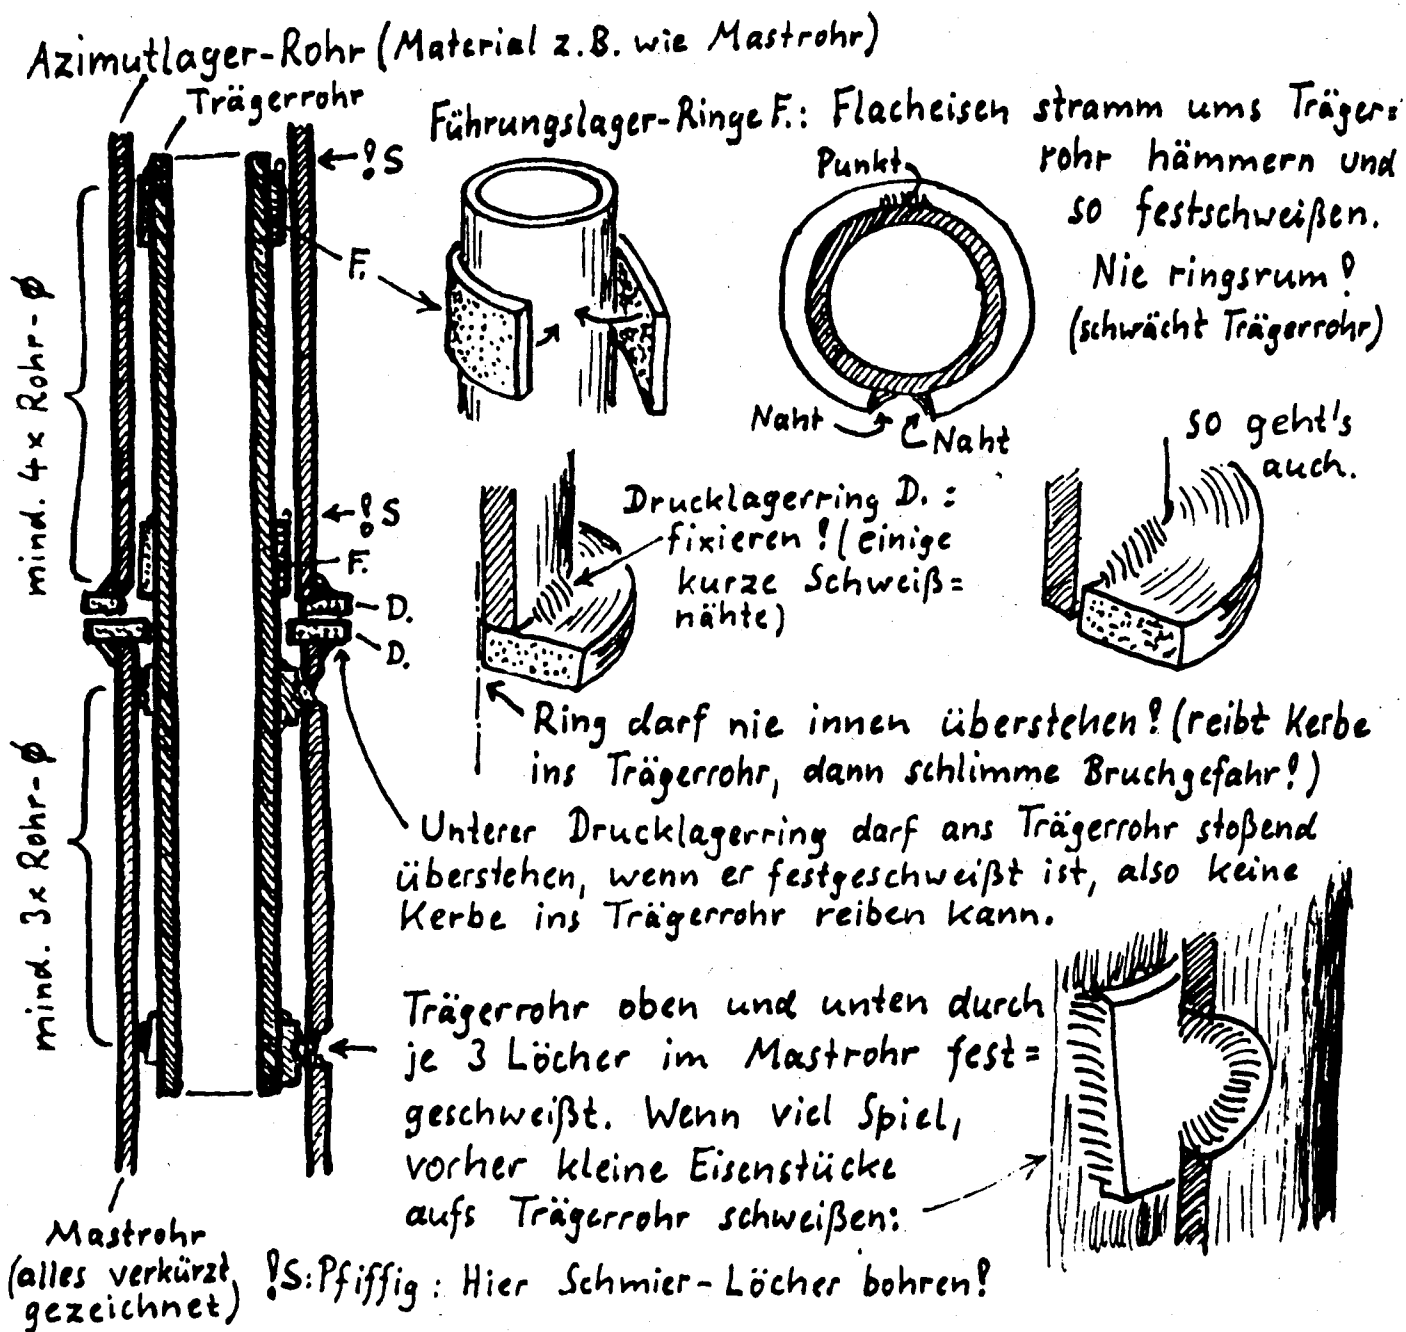 Azimutlager-Rohr (Material z.B. wie Mastrohr)
Trägerrohr
!S
F.
mind. 4 x Rohr-ø
!S
F.
D.
D.
mind. 3 x Rohr-ø
Führungslager-Ringe F.: Flacheisen stramm ums Träger=
rohr hämmern und
so festschweißen.
Nie ringsrum!
(schwächt Trägerrohr)
Punkt
Naht
Naht
so geht's
auch.
Drucklagerring D. :
fixieren! (einige
kurze Schweiß=
nähte)
Ring darf nie innen überstehen! (reibt Kerbe
ins Trägerrohr, dann schlimme Bruchgefahr!)
Unterer Drucklagerring darf ans Trägerrohr stoßend
überstehen, wenn er festgeschweißt ist, also keine
Kerbe ins Trägerrohr reiben kann.
Trägerrohr oben und unten durch
je 3 Löcher im Mastrohr fest=
geschweißt. Wenn viel Spiel,
vorher kleine Eisenstücke
aufs Trägerrohr schweißen:
Mastrohr
(alles verkürzt
gezeichnet)
!S: Pfiffig: Hier Schmier-Löcher bohren!